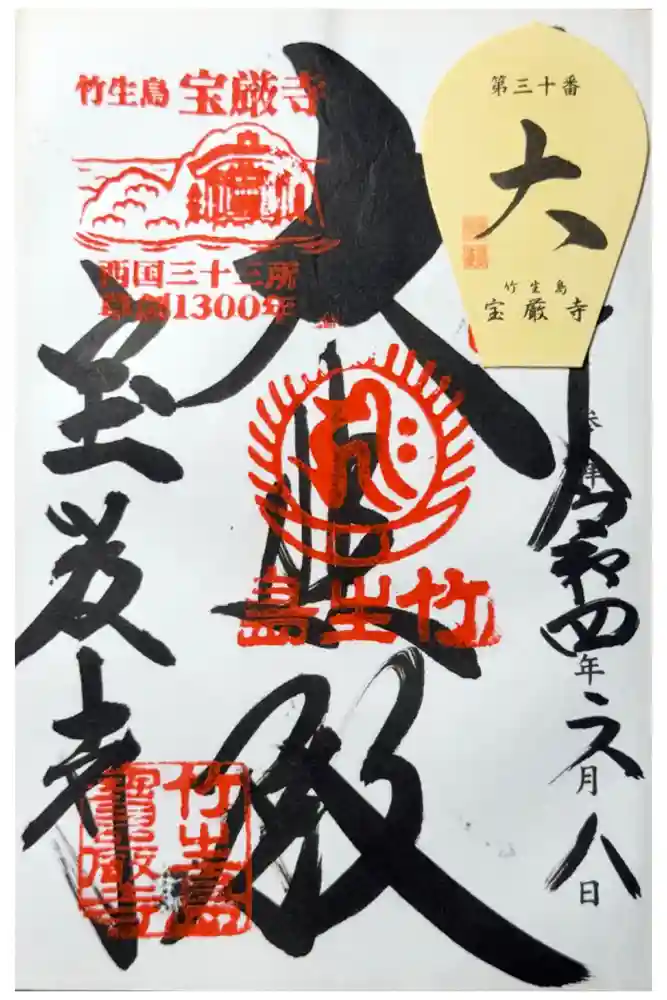 第三十番
大
竹生島
宝厳寺
令和四年六月八日
竹生島 宝厳寺
西国三十三所
草創1300年
大悲殿
竹生島
宝厳寺
竹生島
寶厳寺